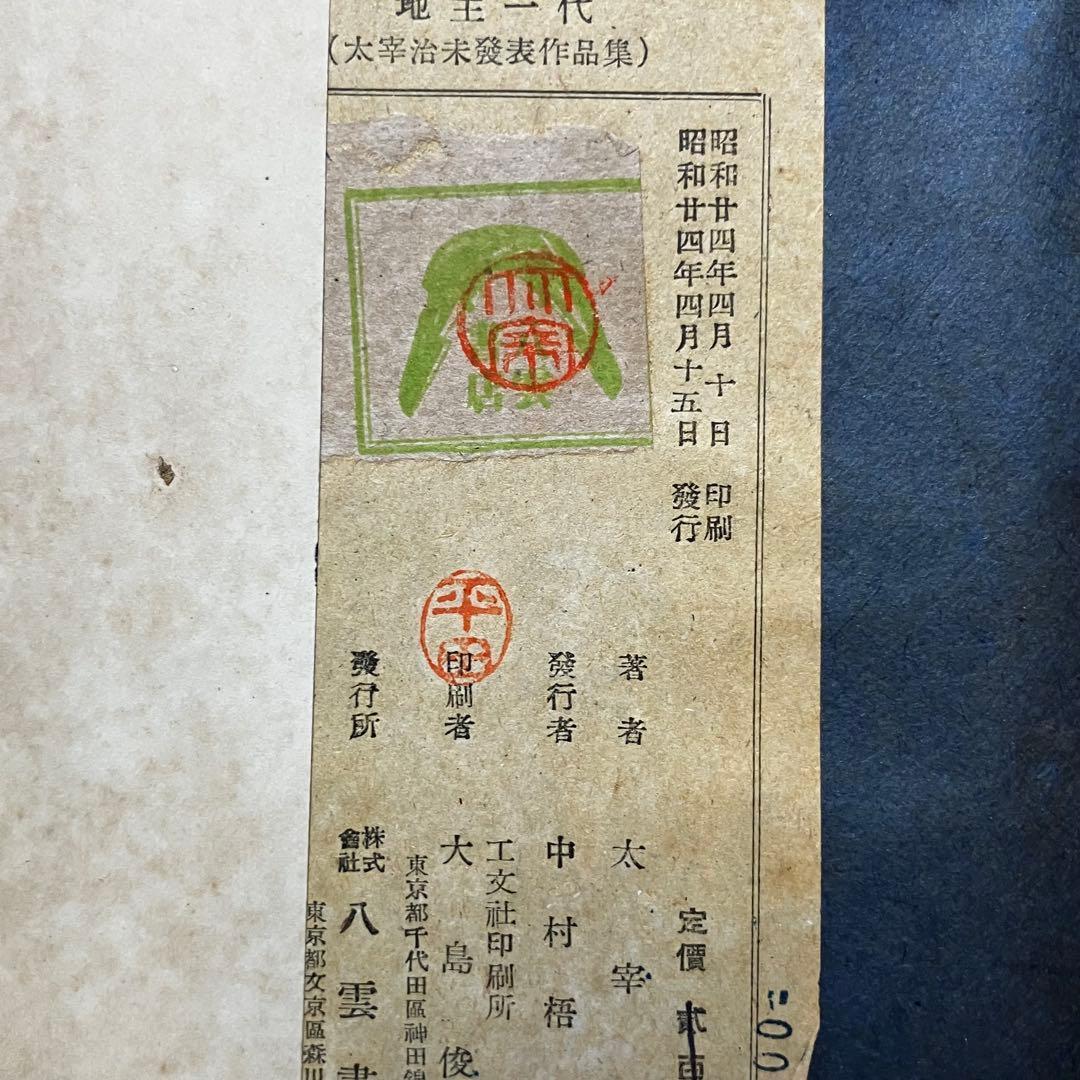 地主一代
(太宰治未發表作品集)
昭和廿四年四月十日 印刷
昭和廿四年四月十五日 發行
定價 貳百
著者 太宰
發行者 中村梧
工文社印刷所
印刷者 大島俊
東京都千代田區神田錦
發行所 株式會社 八雲書
東京都文京區森川
雲
店
平田
00